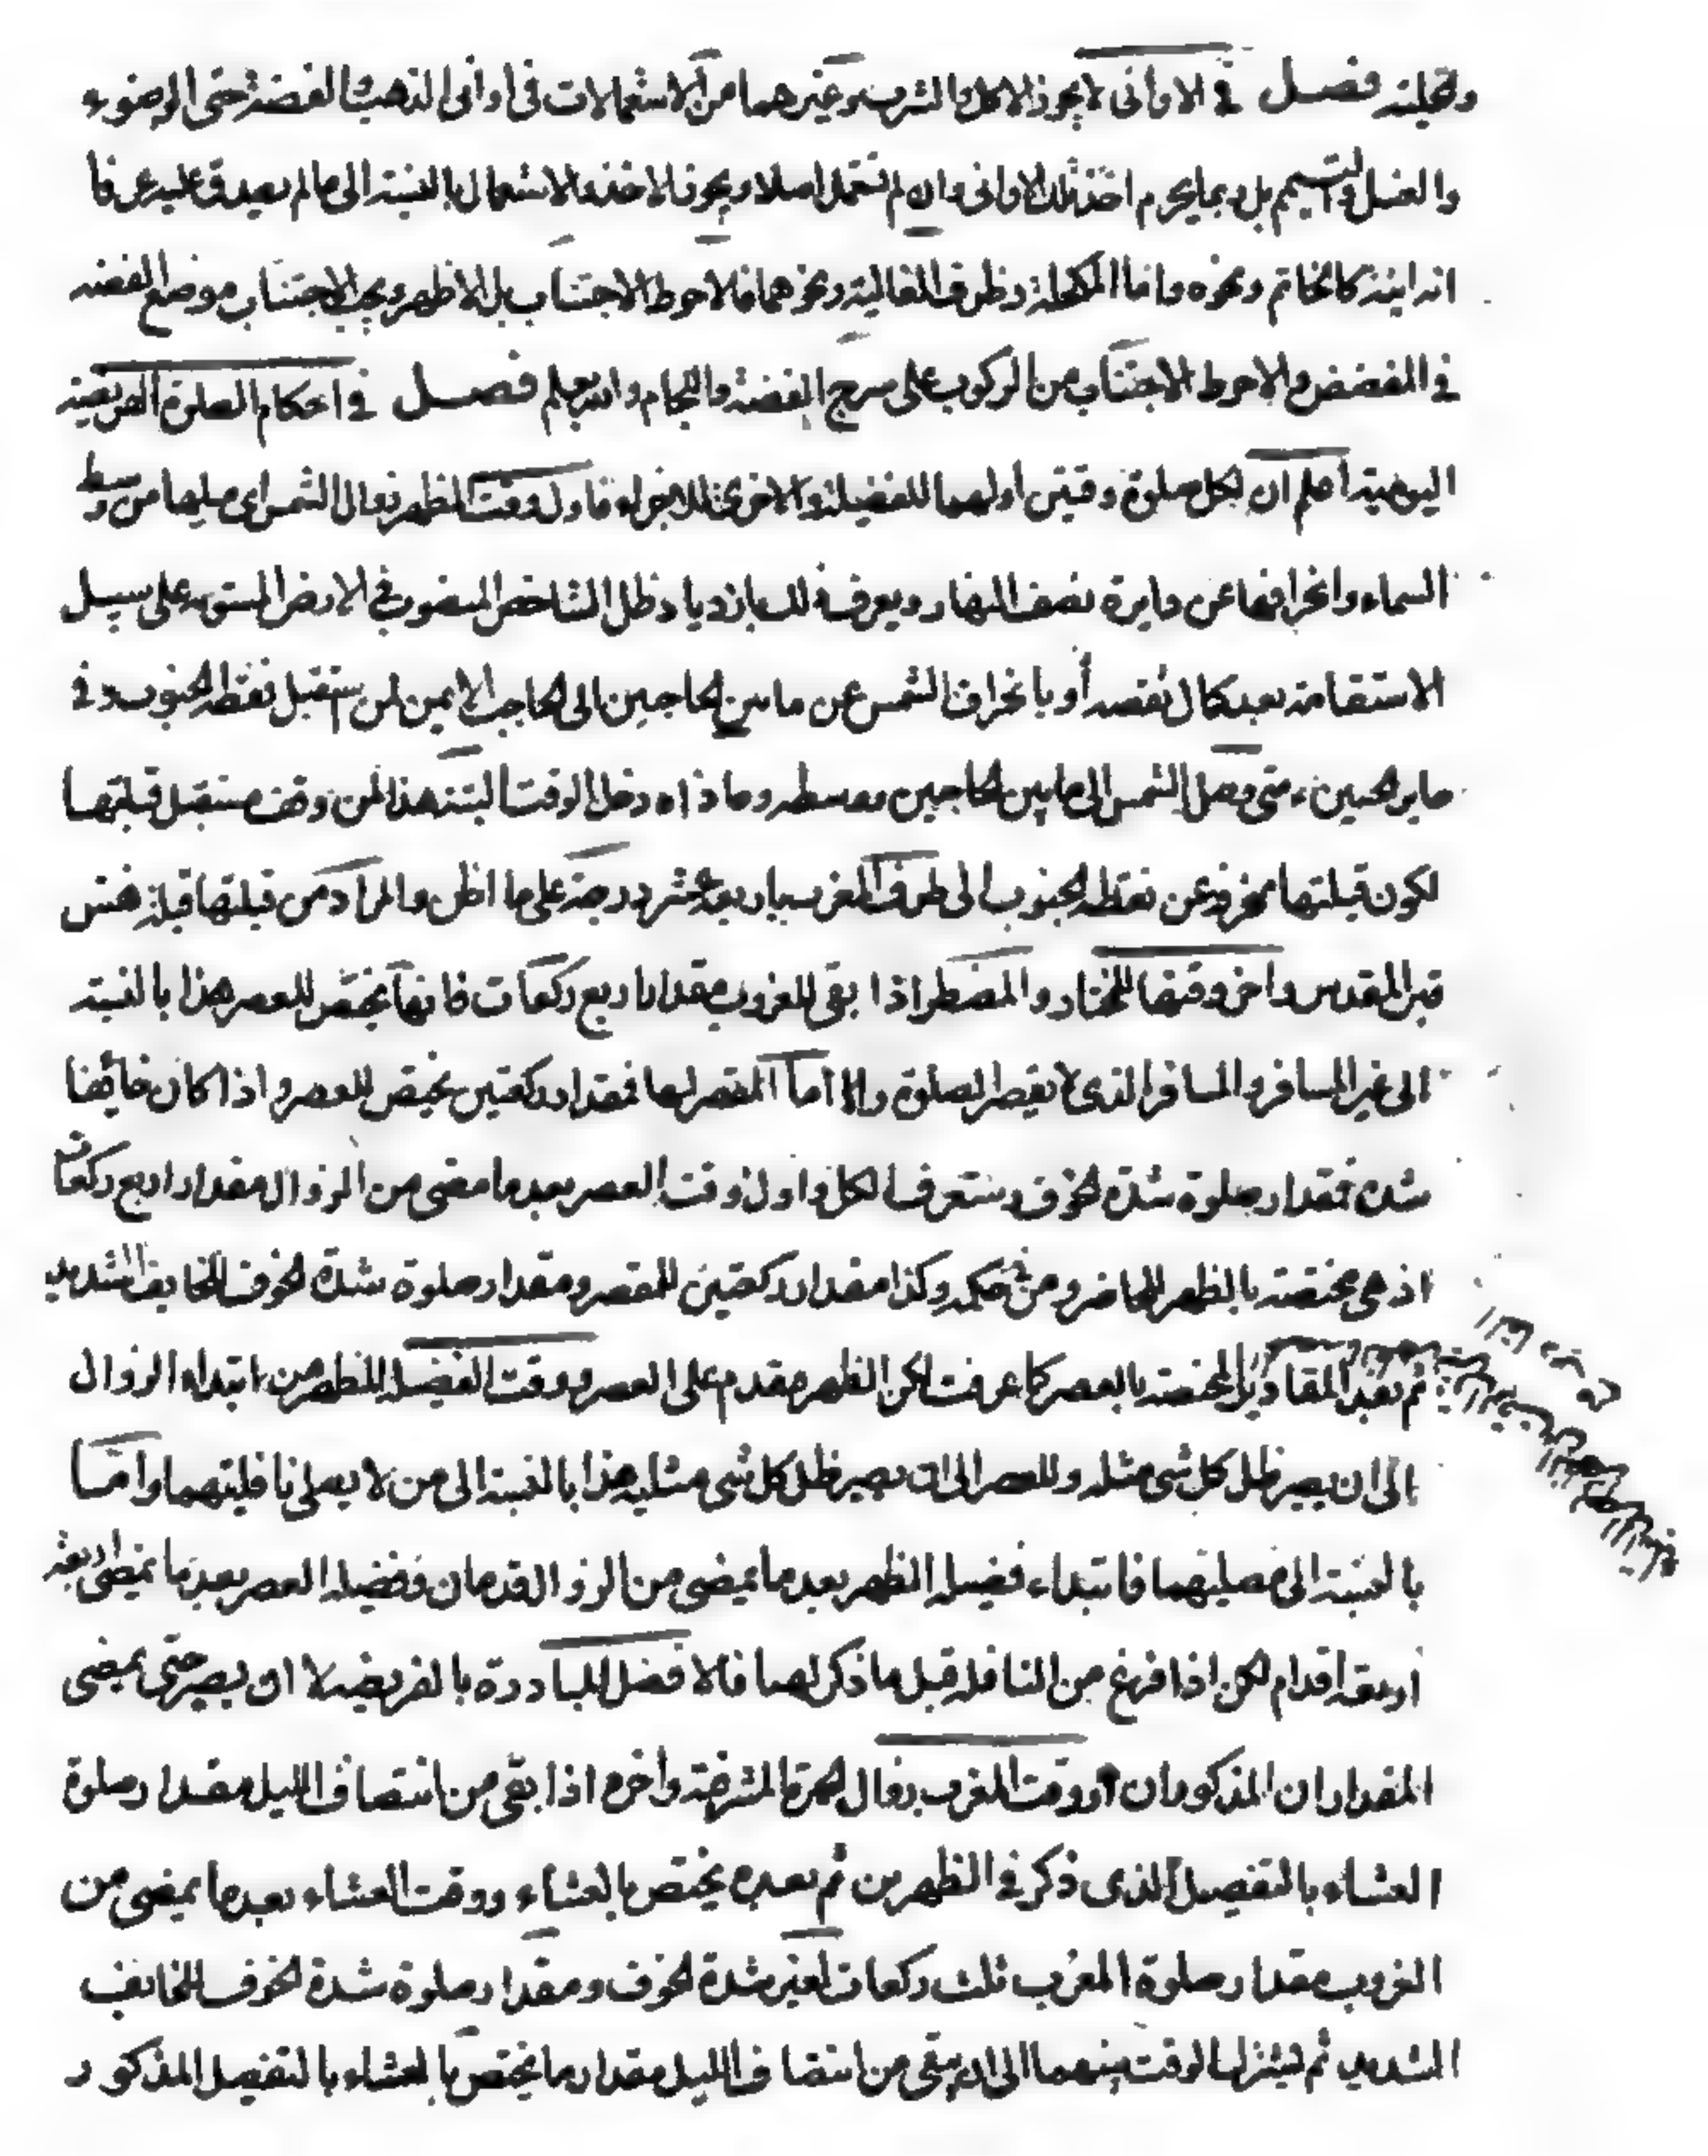 وتحليته فصل في الاوانى لا يجوز الاكل والشرب وغيرهما من الاستعمالات فى اوانى الذهب والفضة حتى الوضوء
والغسل والتيمم بل ربما يحرم اخذ تلك الاوانى وان لم تستعمل اصلا ويجوز الاخذ والاستعمال بالنسبة الى ما لم يصدق عليه عرفا
انه انية كالخاتم ونحوه واما المكحلة وظرف الغالية ونحوهما فالاحوط الاجتناب بل الاظهر ويجب الاجتناب موضع الفضه
في المفضض والاحوط الاجتناب من الركوب على سرج الفضة واللجام والله يعلم فصل في احكام الصلوة الفريضة
اليومية اعلم ان لكل صلوة وقتين اولهما للفضيلة والاخرى للاجزاء فاول وقت الظهر زوال الشمس اى ميلها من وسط
السماء وانحرافها عن دايرة نصف النهار ويعرف ذلك بازدياد ظل الشاخص المنصوب في الارض المستوى على سبيل
الاستقامة بعد كمال نقصه أو بانحراف الشمس عن ما بين الحاجبين الى الحاجب الايمن لمن استقبل نقطة الجنوب وفي
حاير الحسين ع متى وصل الشمس الى ما بين الحاجبين ووسطه وما ذاه دخل الوقت البتة هذا لمن وقف مستقبل قبلتها
لكون قبلتها منحرفة عن نقطة الجنوب الى طرف المغرب باربع عشر درجة على ما اظن والمراد من قبلتها قبلة نفس
قبر المقدس واخر وقتها للمختار والمضطر اذا بقى للغروب مقدار اربع ركعات فانها يختص للعصر هذا بالنسبة
الى غير المسافر والمسافر الذى لا يقصر الصلوة والا اما المقصر لها فمقدار ركعتين يختص للعصر واذا كان خائفا
شده فمقدار صلوة شدة الخوف وستعرف الكل واول وقت العصر بعد ما مضى من الزوال مقدار اربع ركعات
اذ هى مختصة بالظهر للحاضر ومن في حكمه وكذا مقدار ركعتين للمقصر ومقدار صلوة شدة الخوف للخايف الشديد
ثم بعد المقادير المختصة بالعصر كما عرفت لكن الظهر مقدم على العصر ووقت الفضيلة للظهر من ابتداء الزوال
الى ان يصير ظل كل شى مثله وللعصر الى ان يصير ظل كل شى مثليه هذا بالنسبة الى من لا يصلى نافلتهما واما
بالنسبة الى مصليهما فابتداء فضيلة الظهر بعد ما يمضى من الزوال قدمان وفضيلة العصر بعد ما يمضى اربعة
اربعة اقدام لكن اذا فرغ من النافلة قبل ما ذكر لهما فالافضل المبادرة بالفريضة لا ان يصبر حتى يمضى
المقداران المذكوران ووقت المغرب زوال الحمرة المشرقية وأخره اذا بقى من انتصاف الليل مقدار صلوة
العشاء بالتفصيل الذى ذكر في الظهرين ثم بعده يختص بالعشاء ووقت العشاء بعد ما يمضى من
الغروب مقدار صلوة المغرب ثلث ركعات لغير شدة الخوف ومقدار صلوة شدة الخوف للخائف
الشديد ثم يشترك الوقت بينهما الى ان يبقى من انتصاف الليل مقدار ما يختص بالعشاء بالتفصيل المذكور